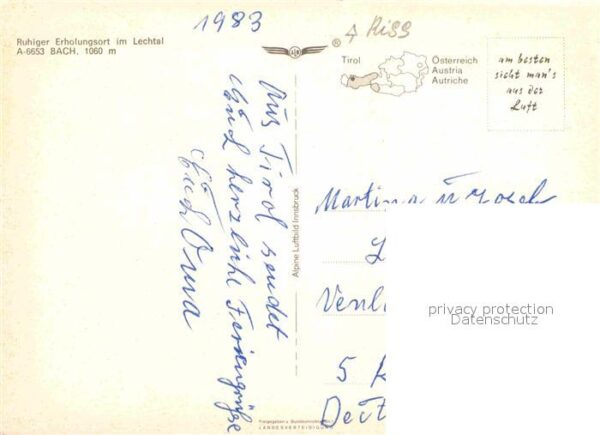 1983
4 Riss
Ruhiger Erholungsort im Lechtal
A-6653 BACH, 1060 m
®
Tirol
Österreich
Austria
Autriche
am besten
sieht man's
aus der
Luft
Aus Tirol sendet
Euch herzliche Feriengrüße
Euch Oma
Alpine Luftbild Innsbruck
Martina u
Venl
5
Deut
privacy protection
Datenschutz
LANDESVERTEIDIGUNG